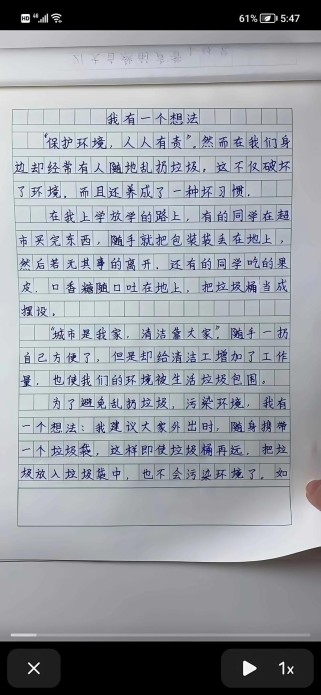 61% 5:47
我有一个想法
“保护环境,人人有责”。然而在我们身
边却经常有人随地乱扔垃圾,这不仅破坏
了环境,而且还养成了一种坏习惯.
在我上学放学的路上,有的同学在超
市买完东西,随手就把包装袋丢在地上,
然后若无其事的离开.还有的同学吃的果
皮、口香糖随口吐在地上,把垃圾桶当成
摆设。
“城市是我家,清洁靠大家”.随手一扔
自己方便了,但是却给清洁工增加了工作
量,也使我们的环境被生活垃圾包围。
为了避免乱扔垃圾,污染环境,我有
一个想法:我建议大家外出时,随身携带
一个垃圾袋,这样即使垃圾桶再远,把垃
圾放入垃圾袋中,也不会污染环境了。如
1x